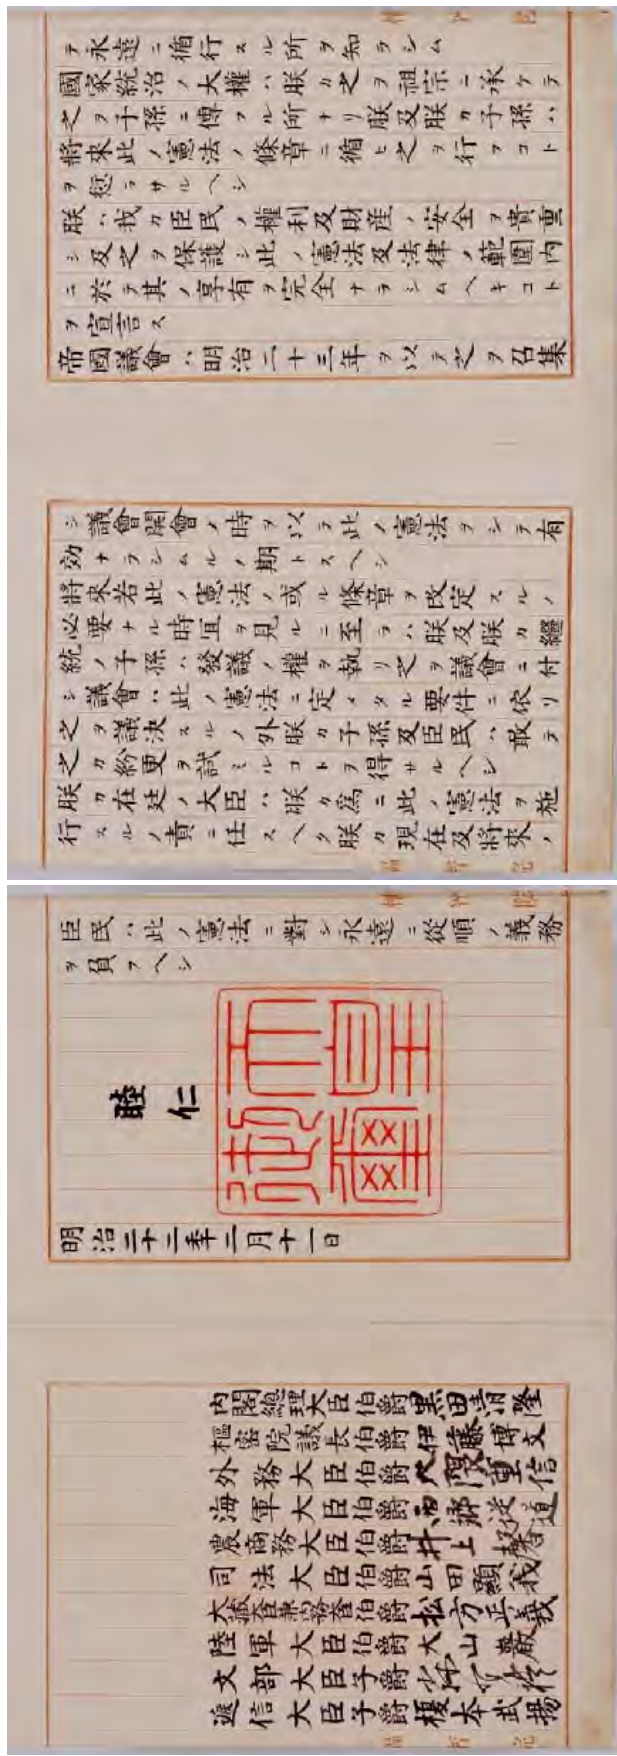 テ永遠ニ循行スル所ヲ知ラシム
國家統治ノ大權ハ朕カ之ヲ祖宗ニ承ケテ
之ヲ子孫ニ傳フル所ナリ朕及朕カ子孫ハ
將來此ノ憲法ノ條章ニ循ヒ之ヲ行フコト
ヲ愆ラサルヘシ
朕ハ我カ臣民ノ權利及財產ノ安全ヲ貴重
シ及之ヲ保護シ此ノ憲法及法律ノ範圍內
ニ於テ其ノ享有ヲ完全ナラシムヘキコト
ヲ宣言ス
帝國議會ハ明治二十三年ヲ以テ之ヲ召集
シ議會開會ノ時ヲ以テ此ノ憲法ヲシテ有
効ナラシムルノ期トスヘシ
將來若此ノ憲法ノ或ル條章ヲ改定スルノ
必要ナル時宜ヲ見ルニ至ラハ朕及朕カ繼
統ノ子孫ハ發議ノ權ヲ執リ之ヲ議會ニ付
シ議會ハ此ノ憲法ニ定メタル要件ニ依リ
之ヲ議決スルノ外朕カ子孫及臣民ハ敢テ
之カ紛更ヲ試ミルコトヲ得サルヘシ
朕カ在廷ノ大臣ハ朕カ爲ニ此ノ憲法ヲ施
行スルノ責ニ任スヘク朕カ現在及將來ノ
臣民ハ此ノ憲法ニ對シ永遠ニ從順ノ義務
ヲ負フヘシ
睦仁
天皇御璽
明治二十二年二月十一日
內閣總理大臣伯爵黑田清隆
樞密院議長伯爵伊藤博文
外務大臣伯爵大隈重信
海軍大臣伯爵西鄉從道
農商務大臣伯爵井上馨
司法大臣伯爵山田顯義
大藏大臣兼內務大臣伯爵松方正義
陸軍大臣伯爵大山巖
文部大臣子爵森有禮
遞信大臣子爵榎本武揚